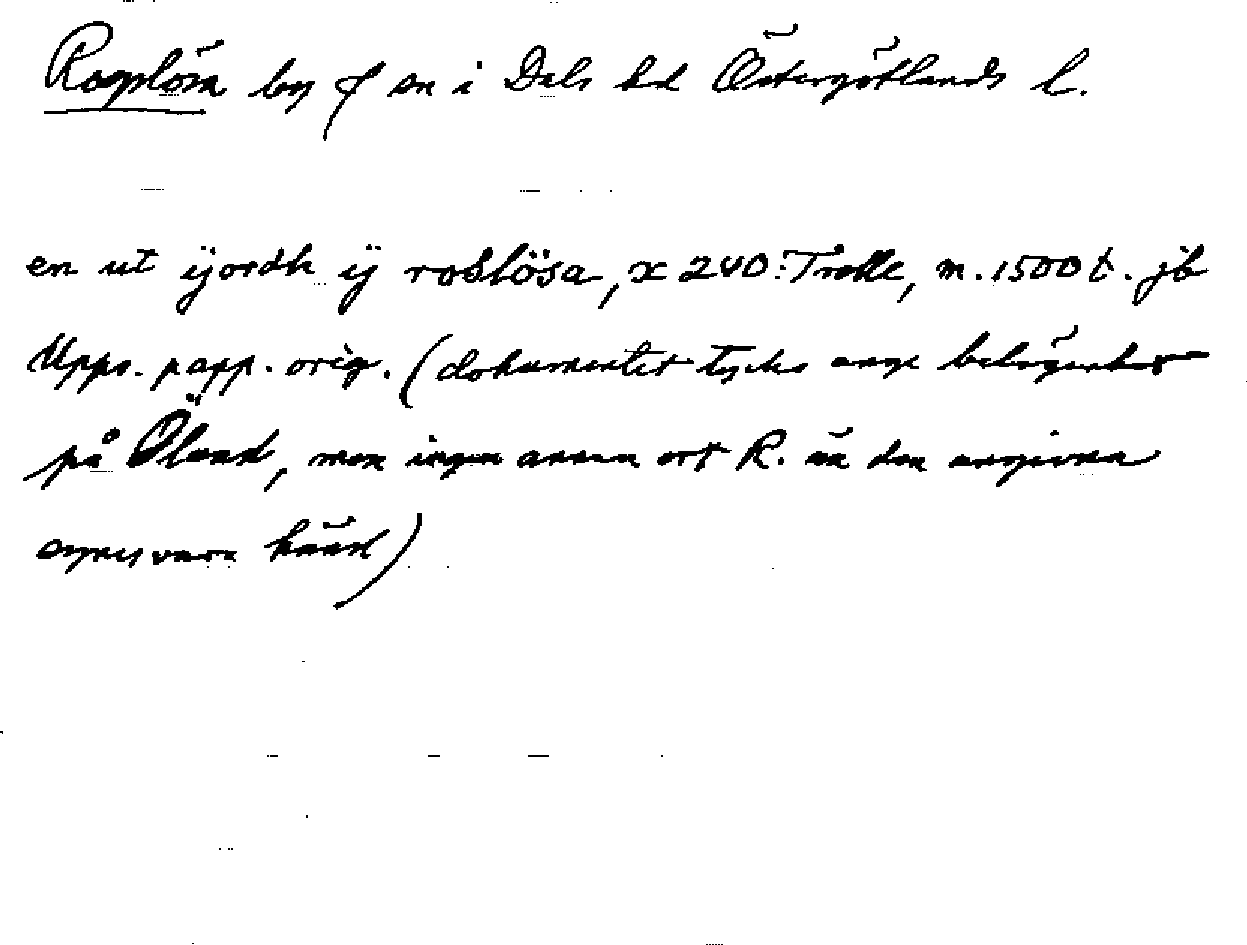 Rogslösa by o sn i Dals hd Östergötlands l.
en ut ÿordh ÿ roslösa, x 240: Trolle, m. 1500 t. jb
Upps. papp. orig. (dokumentet tycks ange belägenhet
på Öland, men ingen annan ort R. än den angivna
synes vara känd)